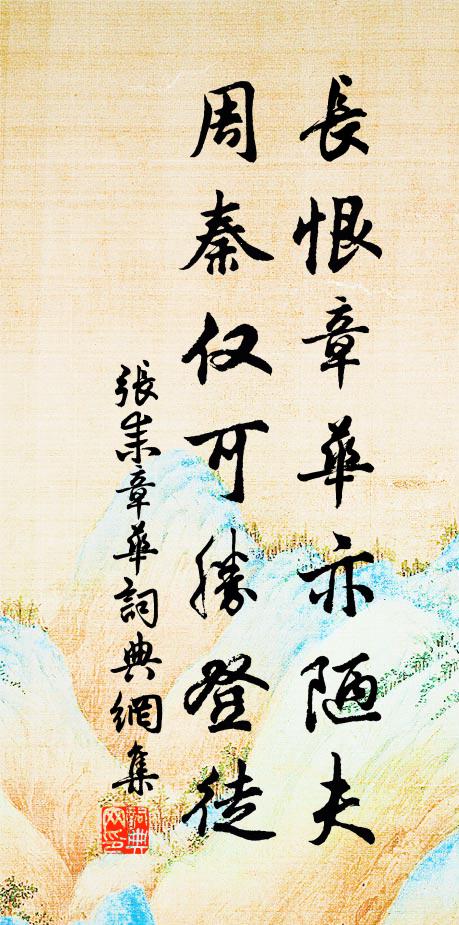 長恨章華亦陋夫
周秦仅可勝登徒
張耒章華詞典網集
詞典網印